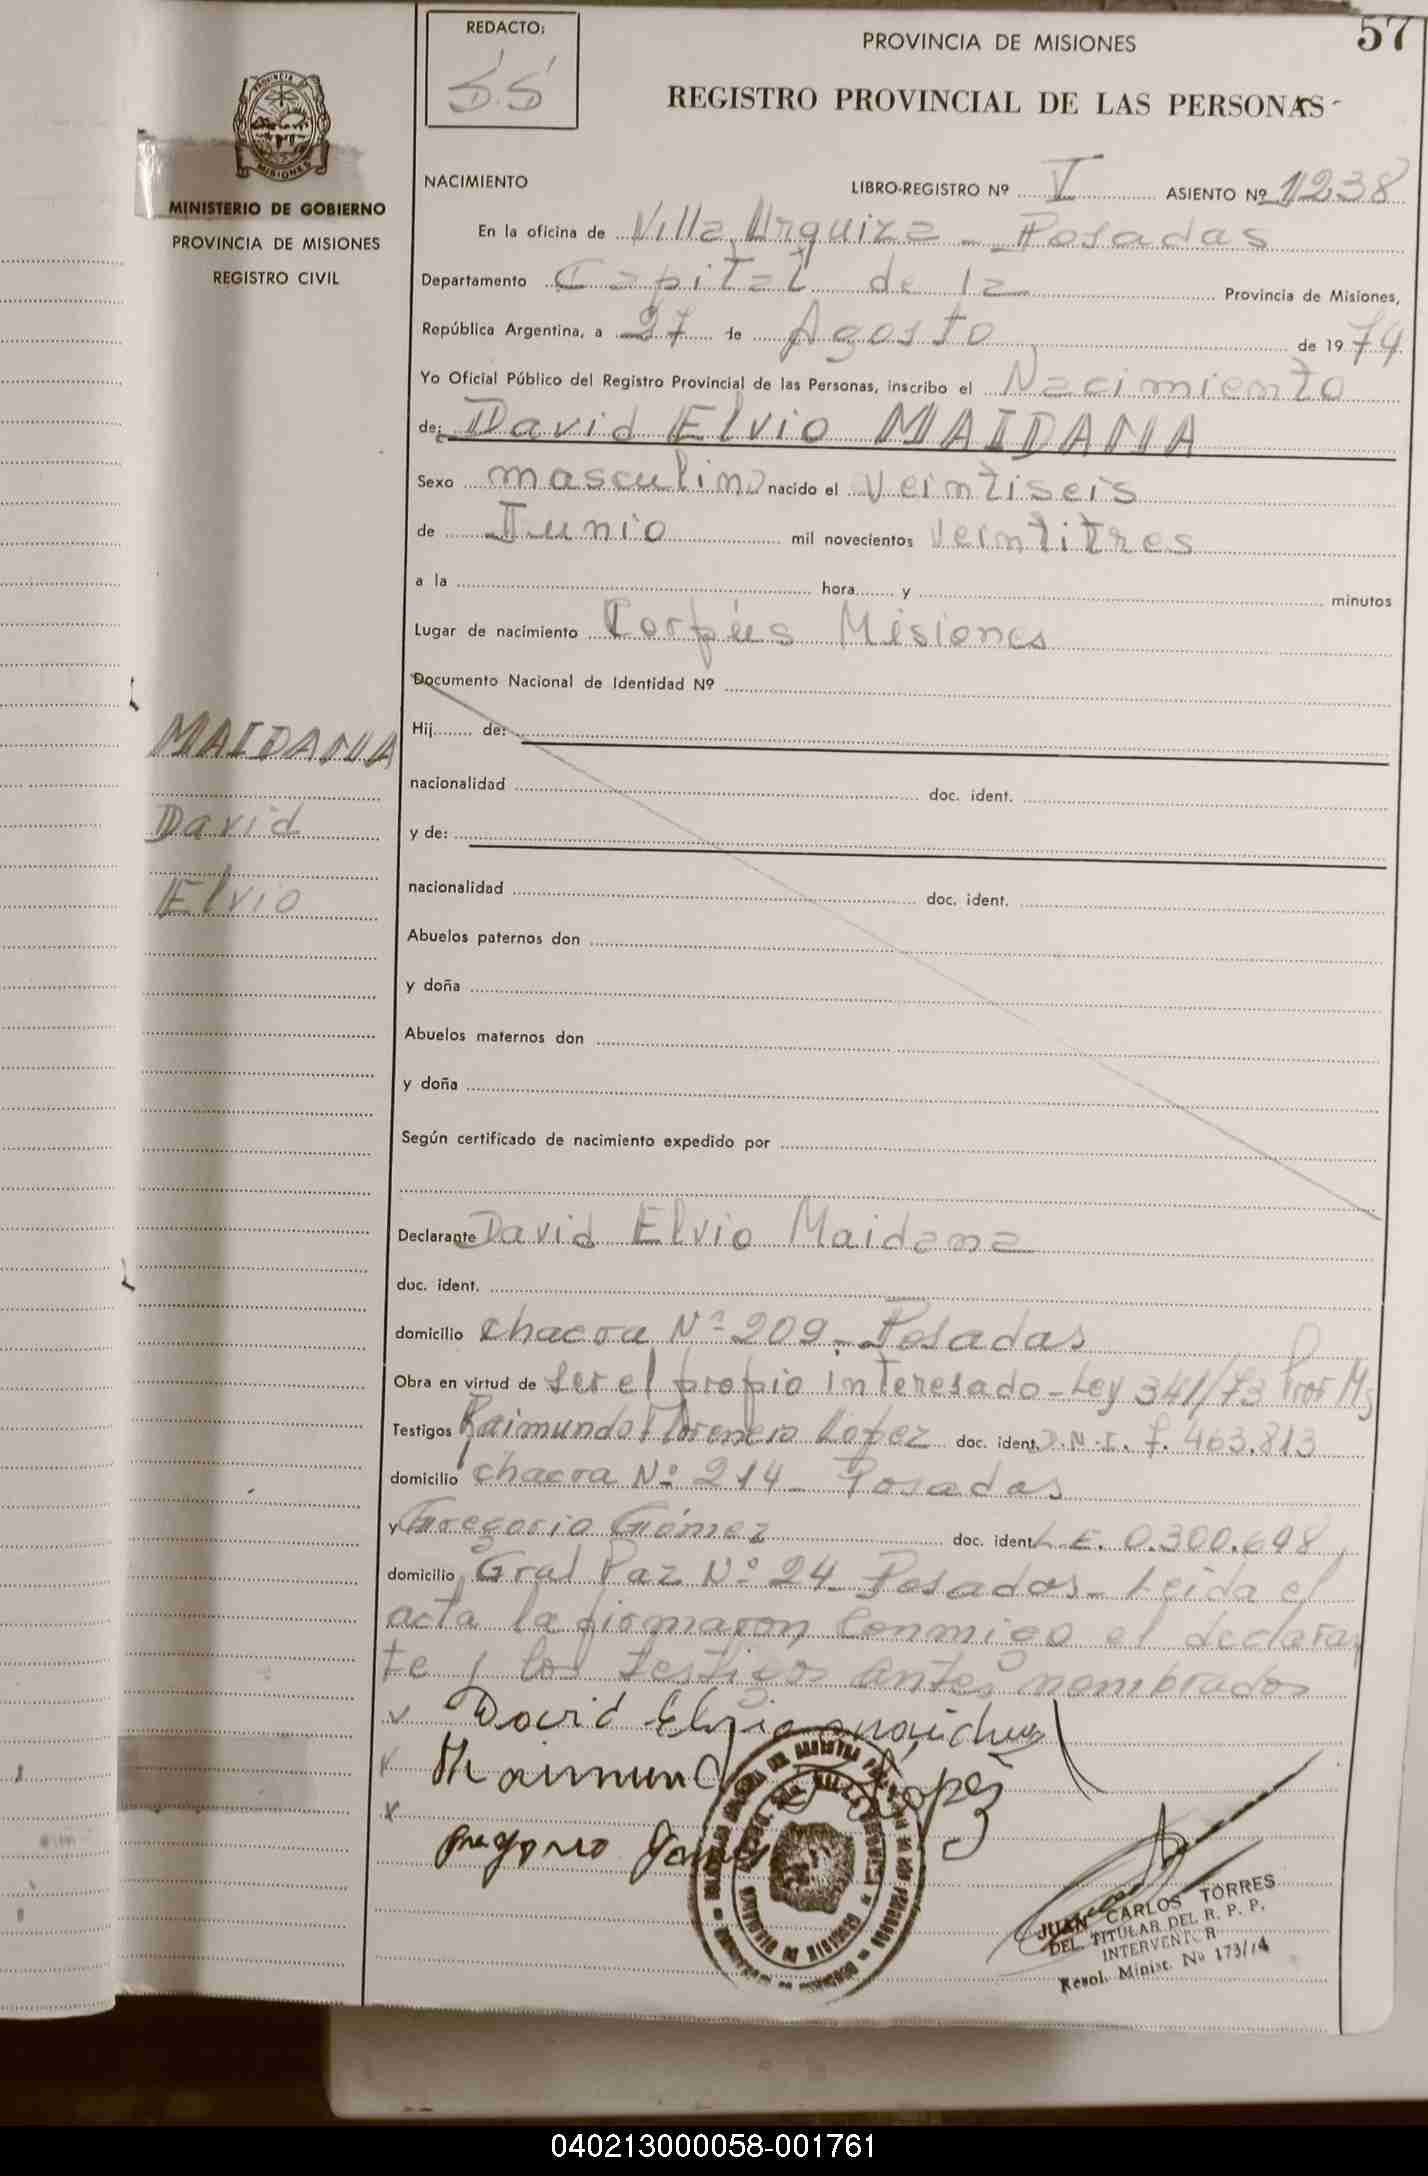 57
REDACTO:
S.S
PROVINCIA DE MISIONES
REGISTRO PROVINCIAL DE LAS PERSONAS
PROVINCIA DE
MISIONES
MINISTERIO DE GOBIERNO
PROVINCIA DE MISIONES
REGISTRO CIVIL
NACIMIENTO LIBRO-REGISTRO Nº V ASIENTO Nº 1238
En la oficina de Villa Urquiza - Posadas
Departamento Capital de la Provincia de Misiones,
República Argentina, a 27 de Agosto de 1974
Yo Oficial Público del Registro Provincial de las Personas, inscribo el Nacimiento
de: David Elvio MAIDANA
Sexo masculino nacido el veintiseis
de Junio mil novecientos veintitres
a la hora y minutos
Lugar de nacimiento Corpus Misiones
Documento Nacional de Identidad Nº
Hij de:
nacionalidad doc. ident.
y de:
nacionalidad doc. ident.
Abuelos paternos don
y doña
Abuelos maternos don
y doña
Según certificado de nacimiento expedido por
MAIDANA
David
Elvio
Declarante David Elvio Maidana
doc. ident.
domicilio chacra Nº 209. Posadas
Obra en virtud de ser el propio interesado - Ley 341/73 Prov Ms
Testigos Raimundo Florencio Lopez doc. ident. D.N.I. 7.463.813
domicilio chacra Nº 214 - Posadas
y Gregorio Gómez doc. ident. L.E. 0.300.698
domicilio Gral Paz Nº 24 - Posadas - Leida el
acta la firmaron conmigo el declaran
te y los testigos antes nombrados
David Elvio Maidana
Raimundo Lopez
gregorio Gomez
JUAN CARLOS TORRES
DEL. TITULAR DEL R. P. P.
INTERVENTOR
Resol. Minist. Nº 173/74
040213000058-001761